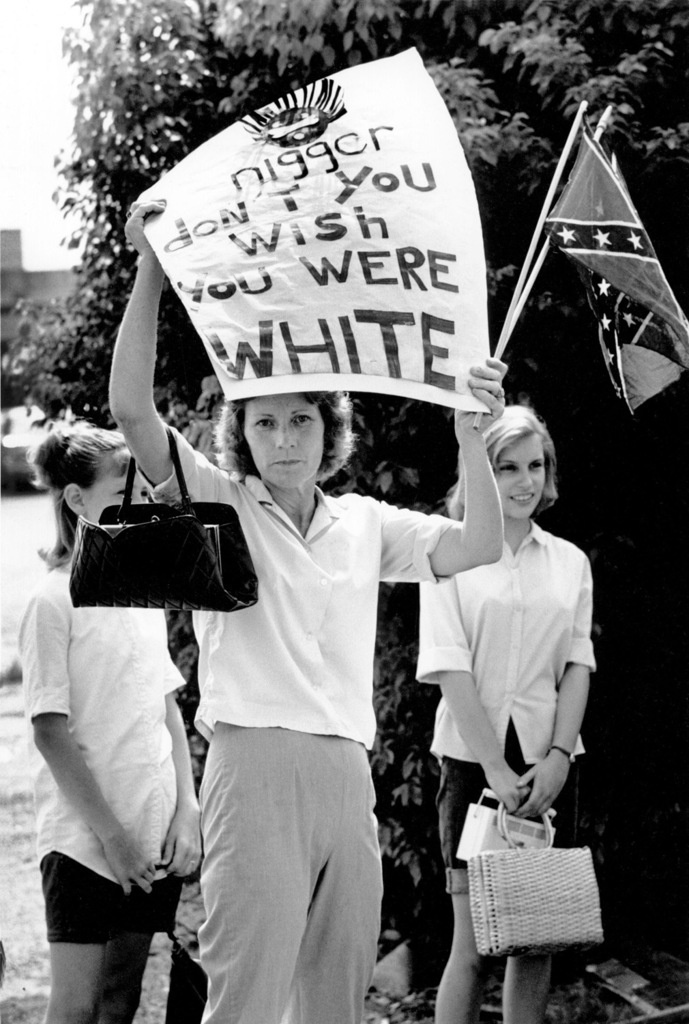 nigger
don't you
wish
you were
WHITE